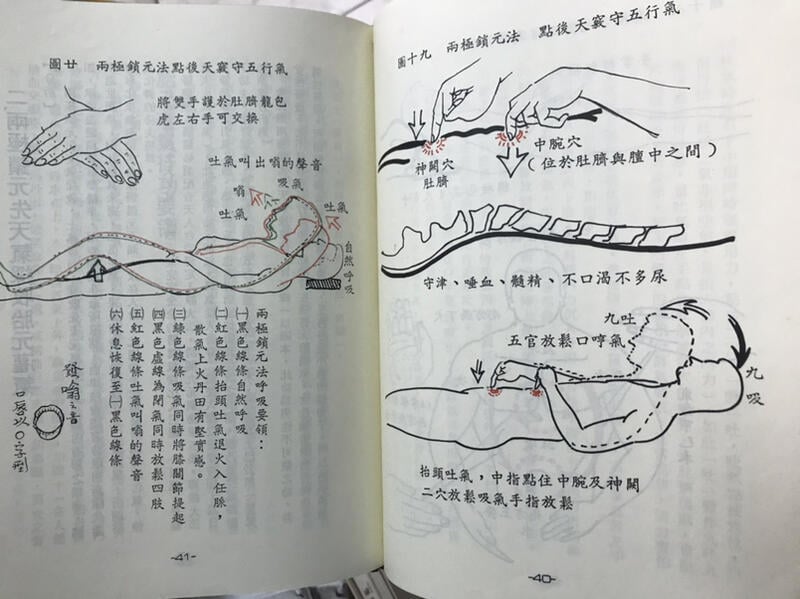 圖十九 兩極鎖元法 點後天竅守五行氣
神闕穴
肚臍
中腕穴
(位於肚臍與膻中之間)
守津、唾血、髓精、不口渴不多尿
九吐
五官放鬆口哼氣
九
吸
抬頭吐氣，中指點住中腕及神闕
二穴放鬆吸氣手指放鬆
-40-
圖廿 兩極鎖元法點後天竅守五行氣
將雙手護於肚臍龍包
虎左右手可交換
吐氣叫出嗡的聲音
吸氣
嗡
吐氣
吐氣
自然呼吸
兩極鎖元法呼吸要領：
㈠黑色線條自然呼吸
㈡紅色線條抬頭吐氣退火入任脈，
散氣上火丹田有堅實感。
㈢綠色線條吸氣同時將膝關節提起
㈣黑色虛線為閉氣同時放鬆四肢
㈤紅色線條吐氣叫嗡的聲音
㈥休息恢復至㈠黑色線條
發嗡之音
口唇以〇字型
-41-